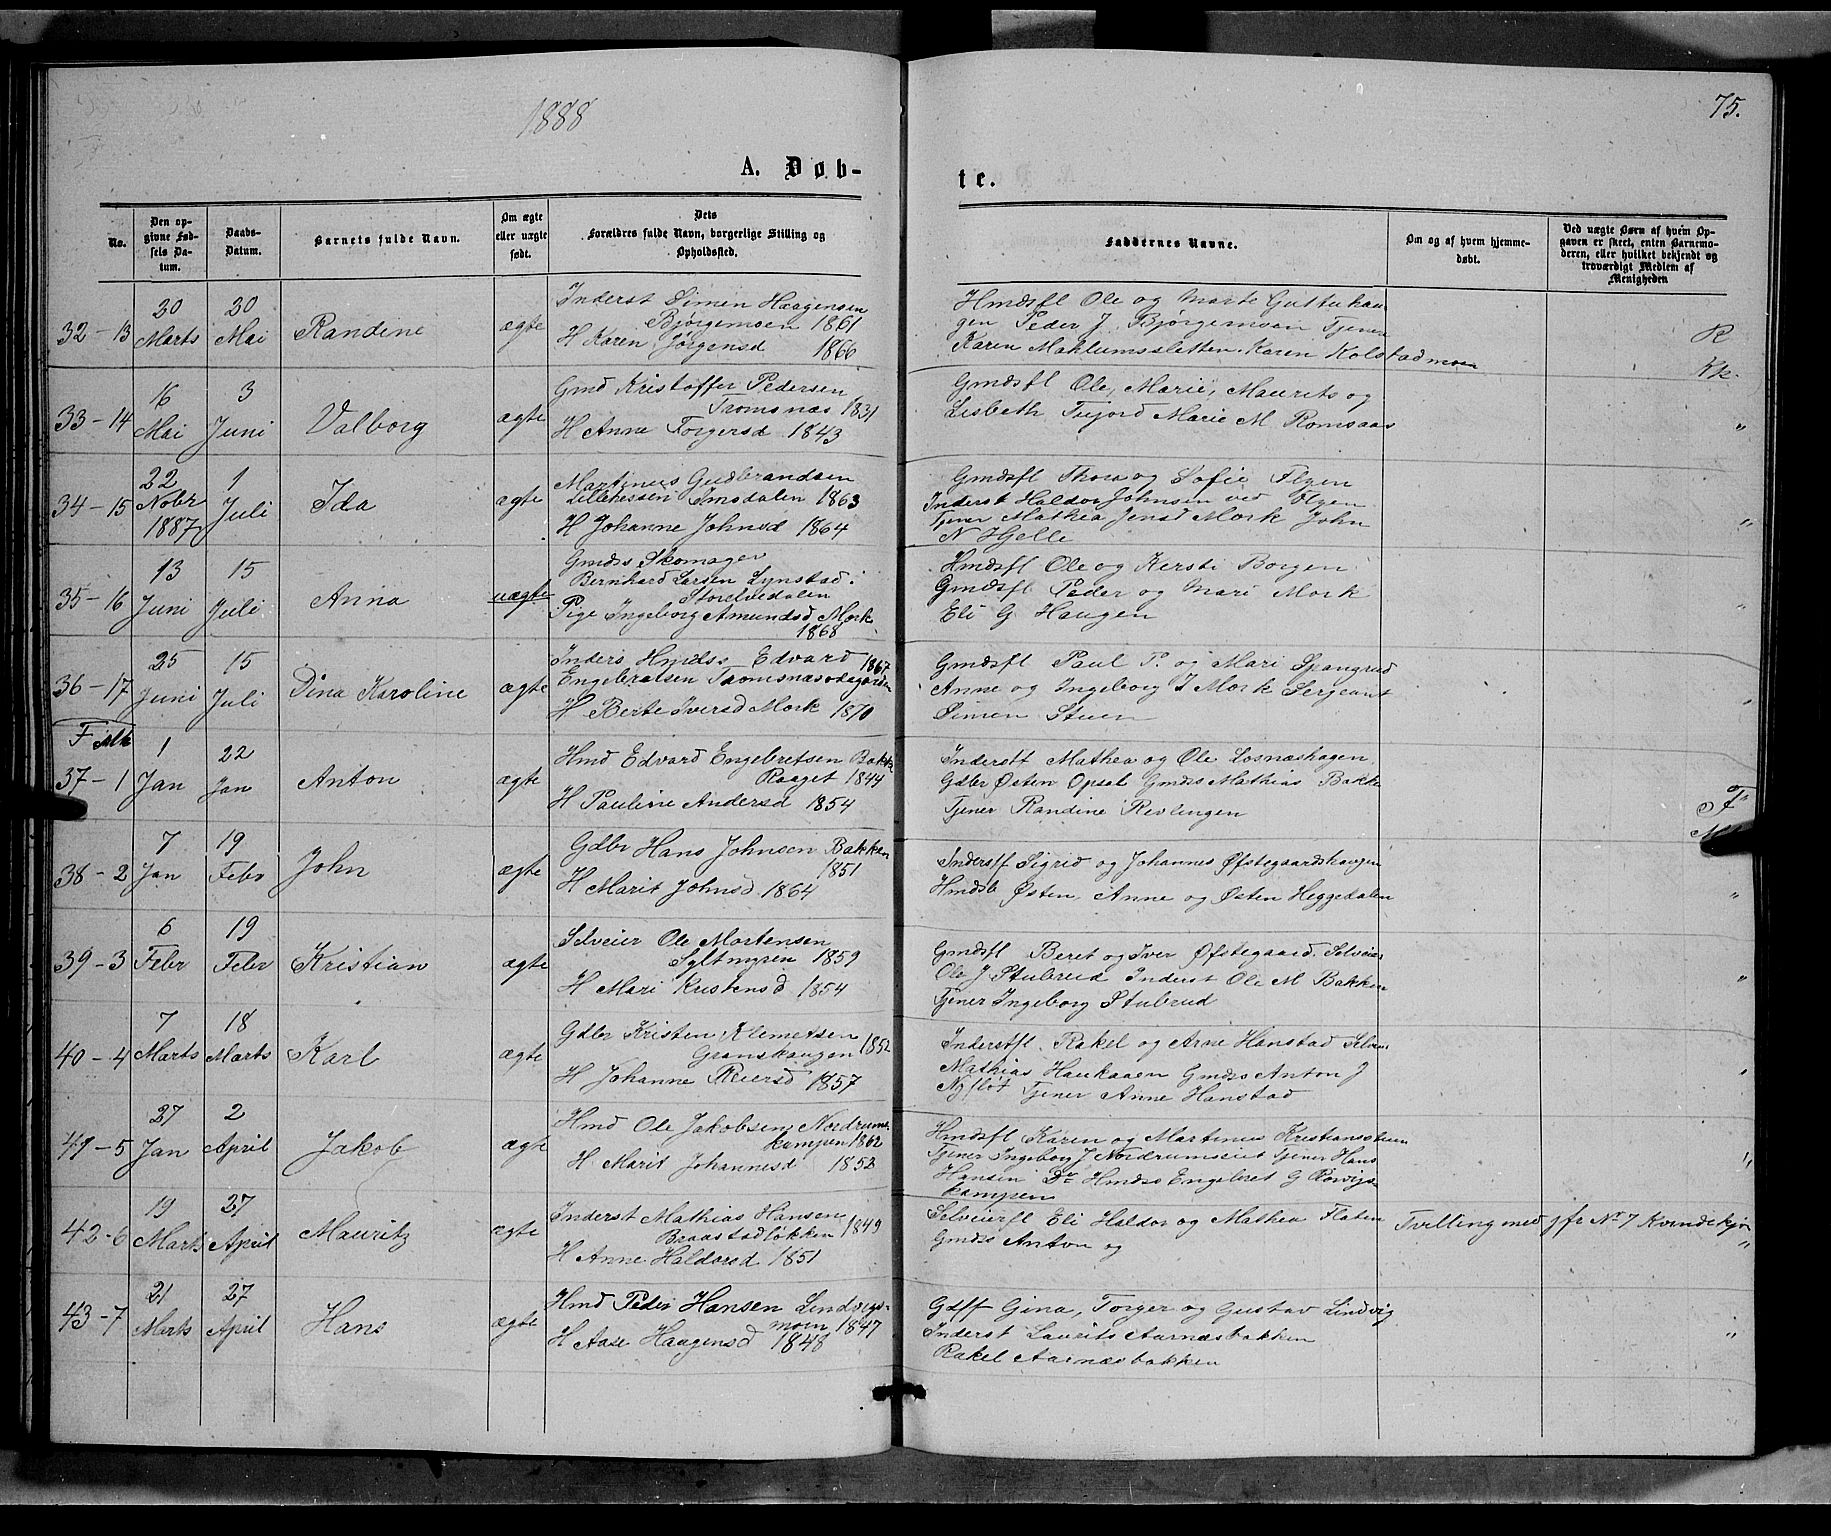 1888
75.
A. Døb-
te.
No.
Den op-
givne Fød-
sels Da-
tum.
Daabs-
Datum.
Barnets fulde Navn.
Om ægte
eller uægte
født.
Dets
Forældres fulde Navn, borgerlige Stilling og
Opholdssted.
Faddernes Navne.
Om og af hvem hjemme-
døbt.
Ved uægte Børn af hvem Op-
gaven er skeet, enten Barnemo-
deren, eller hvilket bekjendt og
troværdigt Medlem af
Menigheden
32-13
20
Marts
20
Mai
Randine
ægte
Inderst Simen Haagensen
Bjørgemoen 1861
H Karen Jørgensd 1866
Hmdsfl Ole og Marte Guttuhau
gen Peder J. Bjørgemoen Tjener
Karen Maklumssletten. Karen Kolstadmoen
R
Kk.
33-14
16
Mai
3
Juni
Valborg
ægte
Gmd Kristoffer Pedersen
Tromsnæs 1831
H Anne Torgersd 1843
Gmdsfl Ole, Marie, Maurits og
Lisbeth Marie M Romsaas
"
34-15
22
Nobr
1887
1
Juli
Ida
ægte
Martinus Gudbrandsen
Imsdalen 1863
H Johanne Johnsd 1864
Gmdsfl Thora og Sofie Flyen
Inderst Haldor Johnsen ved Flyen
Tjener Mathea Jensd Mork John
N Hjelle
"
35-16
13
Juni
15
Juli
Anna
uægte
Gmds Skomager
Bernhard Larsen Lynstad i
Storelvedalen
Pige Ingeborg Amundsd Mork
1868
Hmdsfl Ole og Kersti Borgen
Gmdsfl Peder og Mari Mork
Eli G Haugen
"
36-17
25
Juni
15
Juli
Dina Karoline
ægte
Inders Hmds Edvard 1867
Engebretsen Tromsnæsødegarden
H Berte Iversd Mork 1870
Gmdsfl Paul P. og Mari Spangrud
Anne og Ingeborg I Mork Sergeant
Simen Stuen
"
F
37-1
1
Jan
22
Jan
Anton
ægte
Hmd Edvard Engebretsen Bakke
Raaget 1844
H Pauline Andersd 1854
Inderstf Mathea og Ole Losnæshagen
Gdbr Østen Opsal Gmds Mathias Bakke
Tjener Randine Revlingen
F
38-2
7
Jan
19
Febr
John
ægte
Gdbr Hans Johnsen Bakken
1851
H Marit Johnsd 1864
Inderstf Sigrid og Johannes Øfstegaardshaugen
Hmdsb Østen, Anne og Østen Heggedalen
"
39-3
6
Febr
19
Febr
Kristian
ægte
Selveier Ole Mortensen
Syltmyren 1859
H Mari Kristensd 1854
Gmdsfl Beret og Iver Øfstegaard. Selveier
Ole J Stubrud Inderst Ole M Bakken
Tjener Ingeborg Stubrud
"
40-4
7
Marts
18
Marts
Karl
ægte
Gdbr Kristen Klemetsen
Granskaugen 1852
H Johanne Reiersd 1857
Inderstfl. Rakel og Arne Hanstad Selveier
Mathias Haukaaen Gmds Anton J
Nyfløt Tjener Anne Hanstad
"
41-5
27
Jan
2
April
Jakob
ægte
Hmd Ole Jakobsen Nordrums-
kampen 1862
H Marit Johannesd 1852
Hmdsfl Karen og Martinus Kristiansstuen
Tjener Ingeborg J Nordrumseit Tjener Hans
Hansen Do Hmds Engebret G Rovigs-
kampen
"
42-6
19
Marts
27
April
Mauritz
ægte
Inderst Mathias Hansen
Braastadløkken 1849
H Anne Haldorsd 1851
Selveierfl Eli Haldor og Mathea Flaten
Gmds Anton og
Tvilling med jfr No 7 Kvindekjøn
"
43-7
21
Marts
27
April
Hans
ægte
Hmd Peder Hansen Lindvigs-
moen 1847
H Aase Haagensd 1848
Gdff Gina, Torger og Gustav Lindvig
Inderst Laurits Aarnæsbakken
Rakel Aarnæsbakken
"